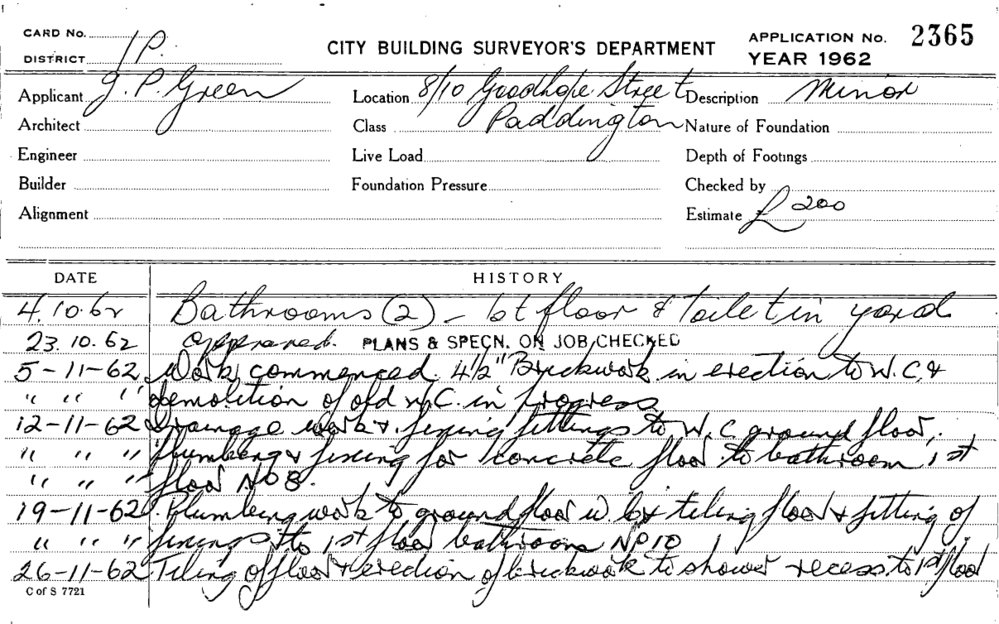 CARD No. 1P.
DISTRICT
CITY BUILDING SURVEYOR'S DEPARTMENT
APPLICATION No. 2365
YEAR 1962
Applicant J. P. Green
Location 8/10 Goodhope Street
Description Minor
Architect
Class Paddington
Nature of Foundation
Engineer
Live Load
Depth of Footings
Builder
Foundation Pressure
Checked by
Alignment
Estimate £ 200
DATE HISTORY
4.10.62 Bathrooms (2) - 1st floor & toilet in yard
23.10.62 Approved. PLANS & SPECN. ON JOB CHECKED
5-11-62 Work commenced. 4½" Brickwork in erection to W.C. &
" " " demolition of old W.C. in progress
12-11-62 Drainage work & fixing fittings to W.C. ground floor,
" " " plumbing & fixing for concrete floor to bathroom 1st
" " " floor No 8.
19-11-62 Plumbing work to ground floor W.C. tiling floor & fitting of
" " " fixings to 1st floor bathrooms No 10
26-11-62 Tiling of floor & erection of brickwork to shower recess to 1st floor
C of S 7721